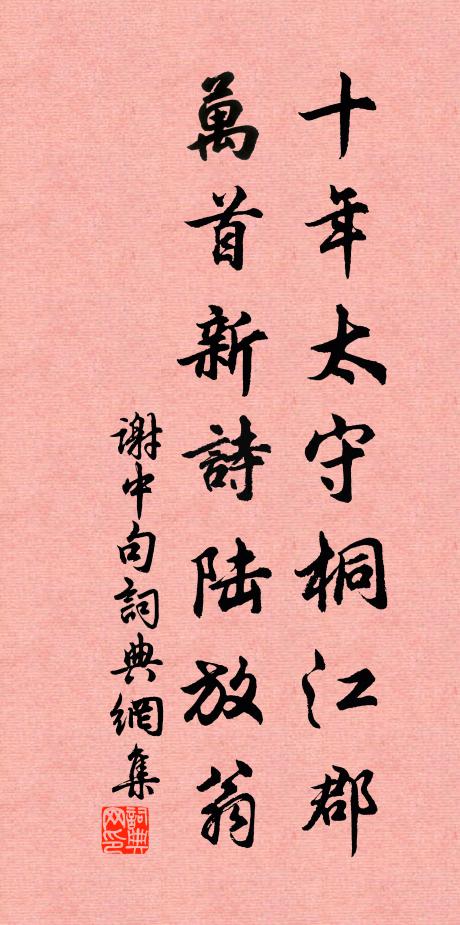 十年太守桐江郡
萬首新詩陆放翁
谢中句詞典網集
詞典
网印